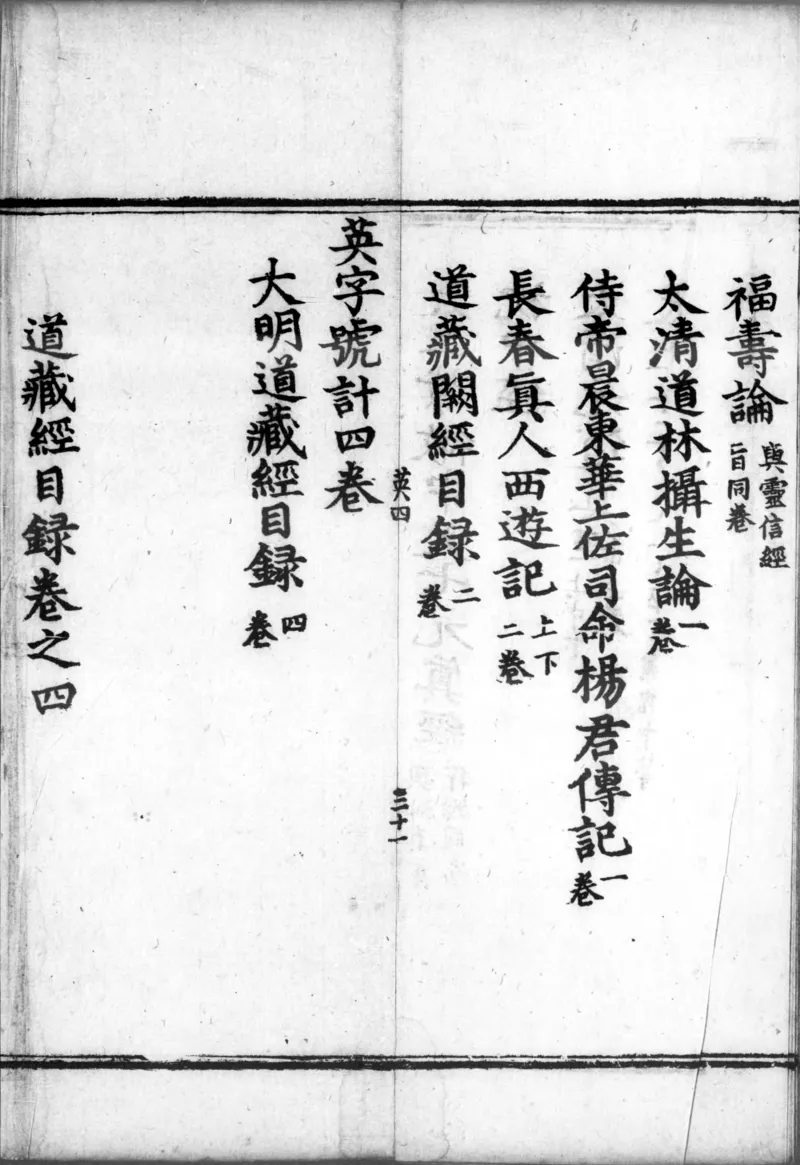 福壽論 與靈信經旨同卷
太清道林攝生論 一卷
侍帝晨東華上佐司命楊君傳記 一卷
長春真人西遊記 上下二卷
道藏闕經目録 二卷
英四
三十一
英字號計四卷
大明道藏經目録 四卷
道藏經目録卷之四